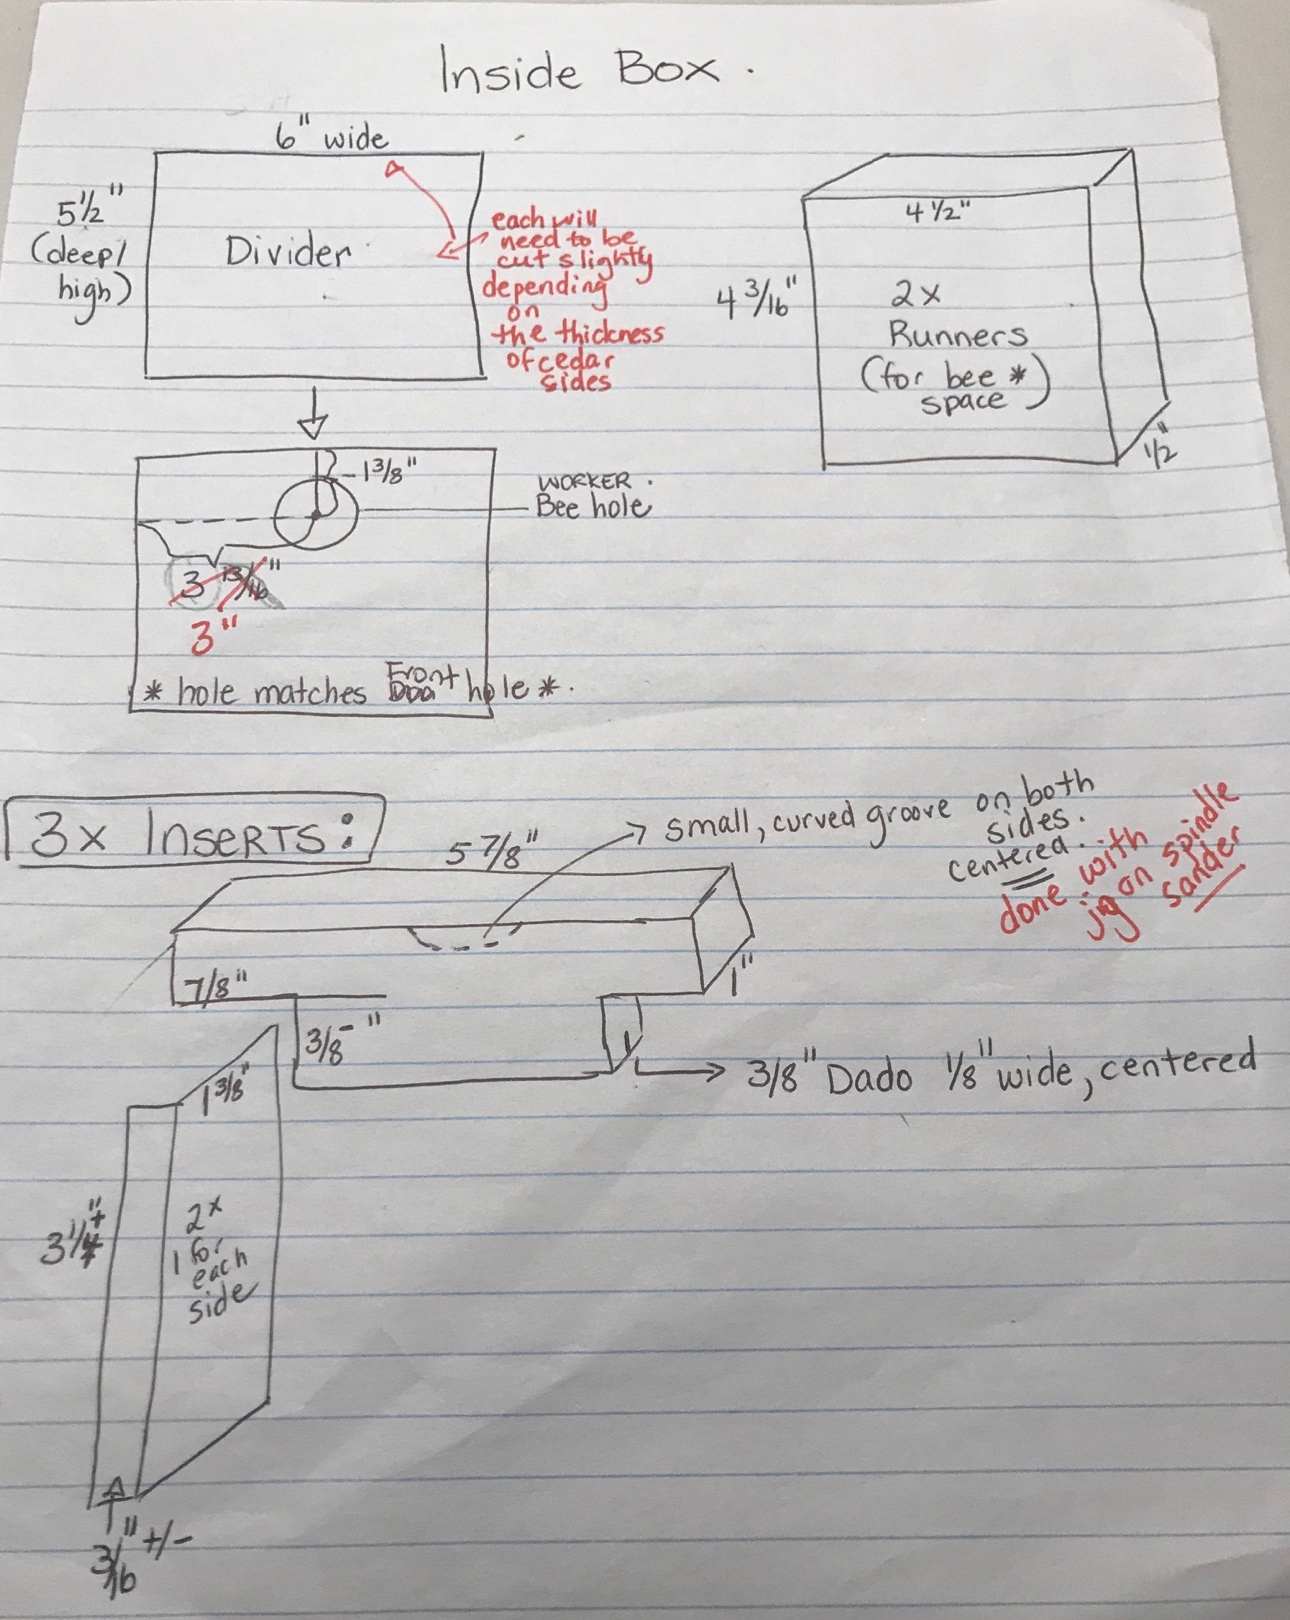 Inside Box.
6" wide
5 1/2"
(deep/
high)
Divider
each will
need to be
cut slightly
depending
on
the thickness
of cedar
sides
4 1/2"
4 3/16"
2x
Runners
(for bee *)
space
1/2"
1 3/8"
WORKER.
Bee hole
3 13/16"
3"
* hole matches Front hole *.
3x Inserts:
5 7/8"
small, curved groove on both
sides.
centered.
done with
jig on spindle
sander
7/8"
1"
3/8"
3/8" Dado 1/8" wide, centered
1 3/8"
3 1/4" +
2x
1 for
each
side
3/16" +/-